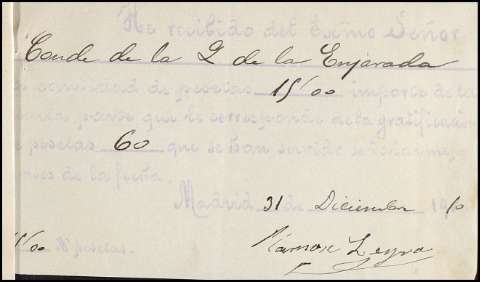 He recibido del Exmo Señor
Conde de la Q de la Enjarada
cantidad de pesetas 15/00 importe de la
parte que le corresponde de la gratificación
pesetas 60 que se han servido
de la peña.
Madrid 31 de Diciembre 19/0
Ramon Leyva
/00 pesetas.